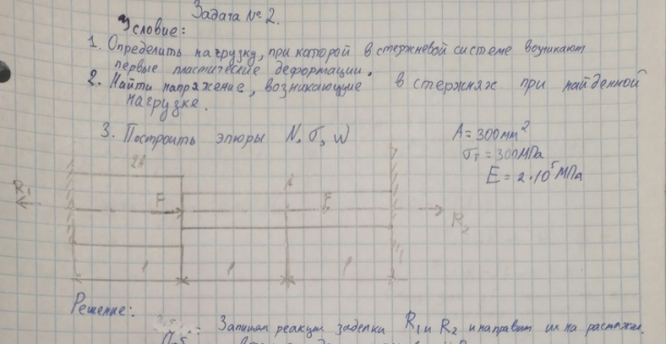 Задача № 2.
Условие:
1. Определить нагрузку, при которой в стержневой системе возникают
первые пластические деформации.
2. Найти напряжение, возникающие в стержнях при найденной
нагрузке.
3. Построить эпюры N, σ, w
A = 300 мм²
σт = 300 МПа
E = 2·10⁵ МПа
2A
A
R₁
F
F
R₂
l l l
Решение:
Запишем реакции заделки R₁ и R₂ и направим их на растяжен.